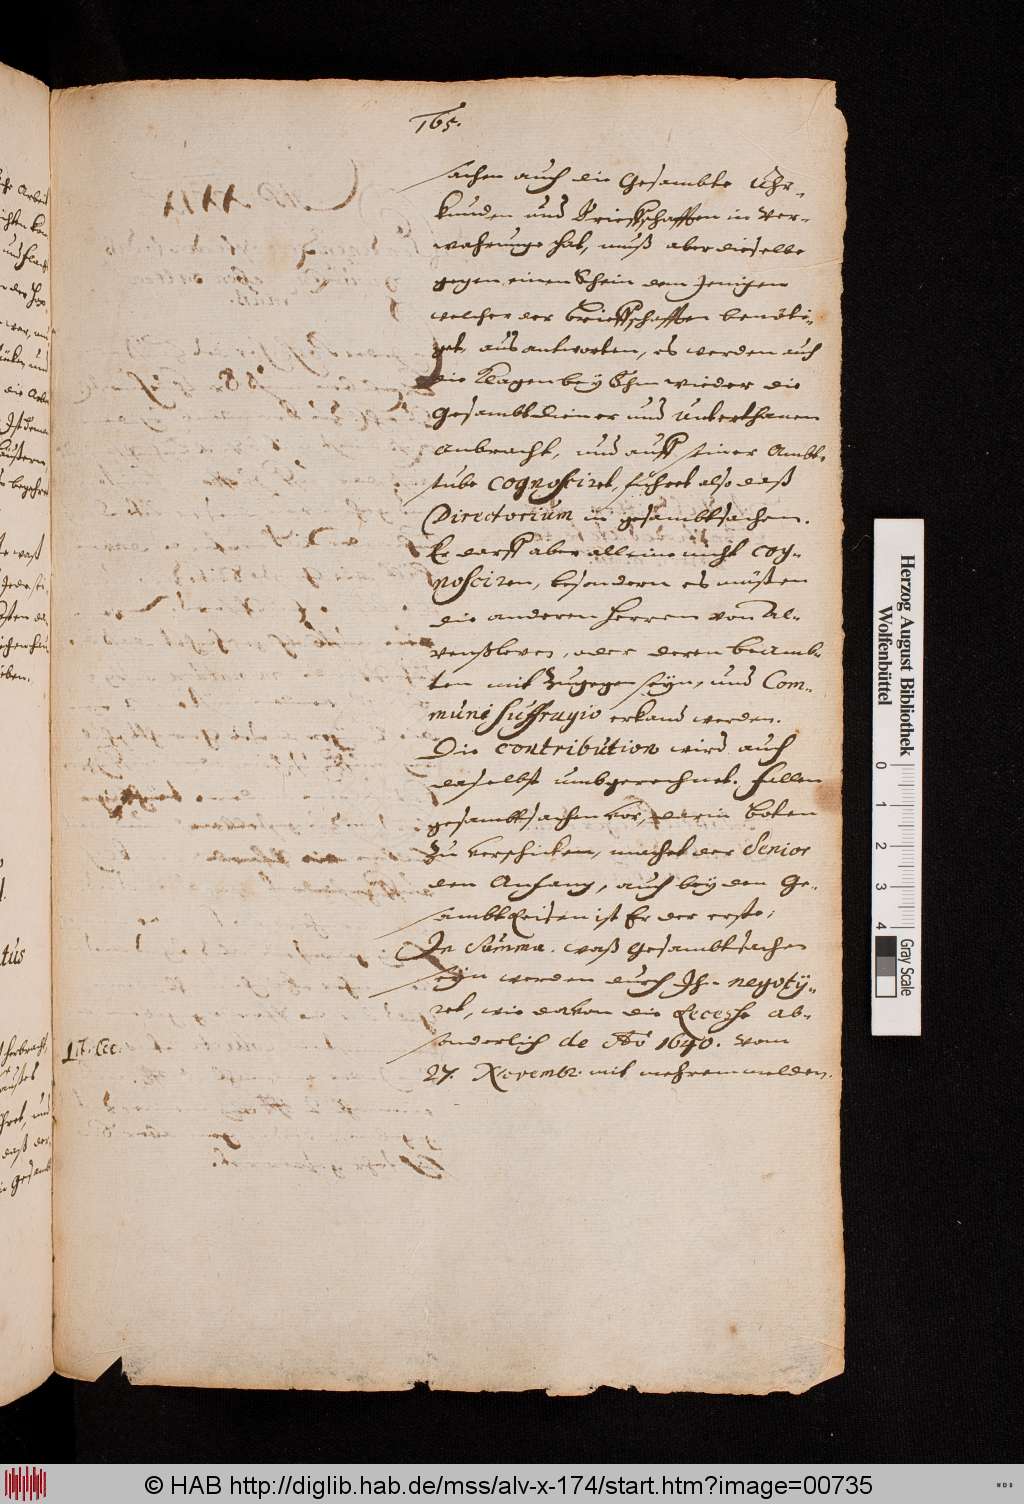 165.
sachen auch die Gesambte Uhr-
kunden und Brieffschafften in Ver-
wahrunge hat, muß aber dieselbe
gegen einen Schein dem Jenigen
welcher der brieffschafften benöti-
get aus antworten, es werden auch
die Klagen bey Ihm wieder die
Gesambt diener und Unterthanen
anbracht, und auff seiner Ambt-
stube cognosciret, führet also daß
Directorium in gesambtsachen.
Er darff aber alleine nicht cog-
nosciren, besondern es müßen
die anderen Herren von Al-
venßleven, oder deren beamb-
ten mit zugegen seyn, und Com-
muni suffragio erkand werden.
Die contribution wird auch
daselbst umbgerechnet. Fallen
gesambtsachen vor, darin boten
zu verschicken, machet der Senior
den Anfang, auch bey den Ge-
sambt Reisen ist Er der erste,
In Summa. waß Gesambtsachen
seyn werden durch Ihn negotii-
ret, wie davon die Recesse ab-
sonderlich de Ao 1640. vom
Lit. Ccc.
27. Novembr. mit mehrem melden.
Herzog August Bibliothek
Wolfenbüttel
0 1 2 3 4
Gray Scale
© HAB http://diglib.hab.de/mss/alv-x-174/start.htm?image=00735